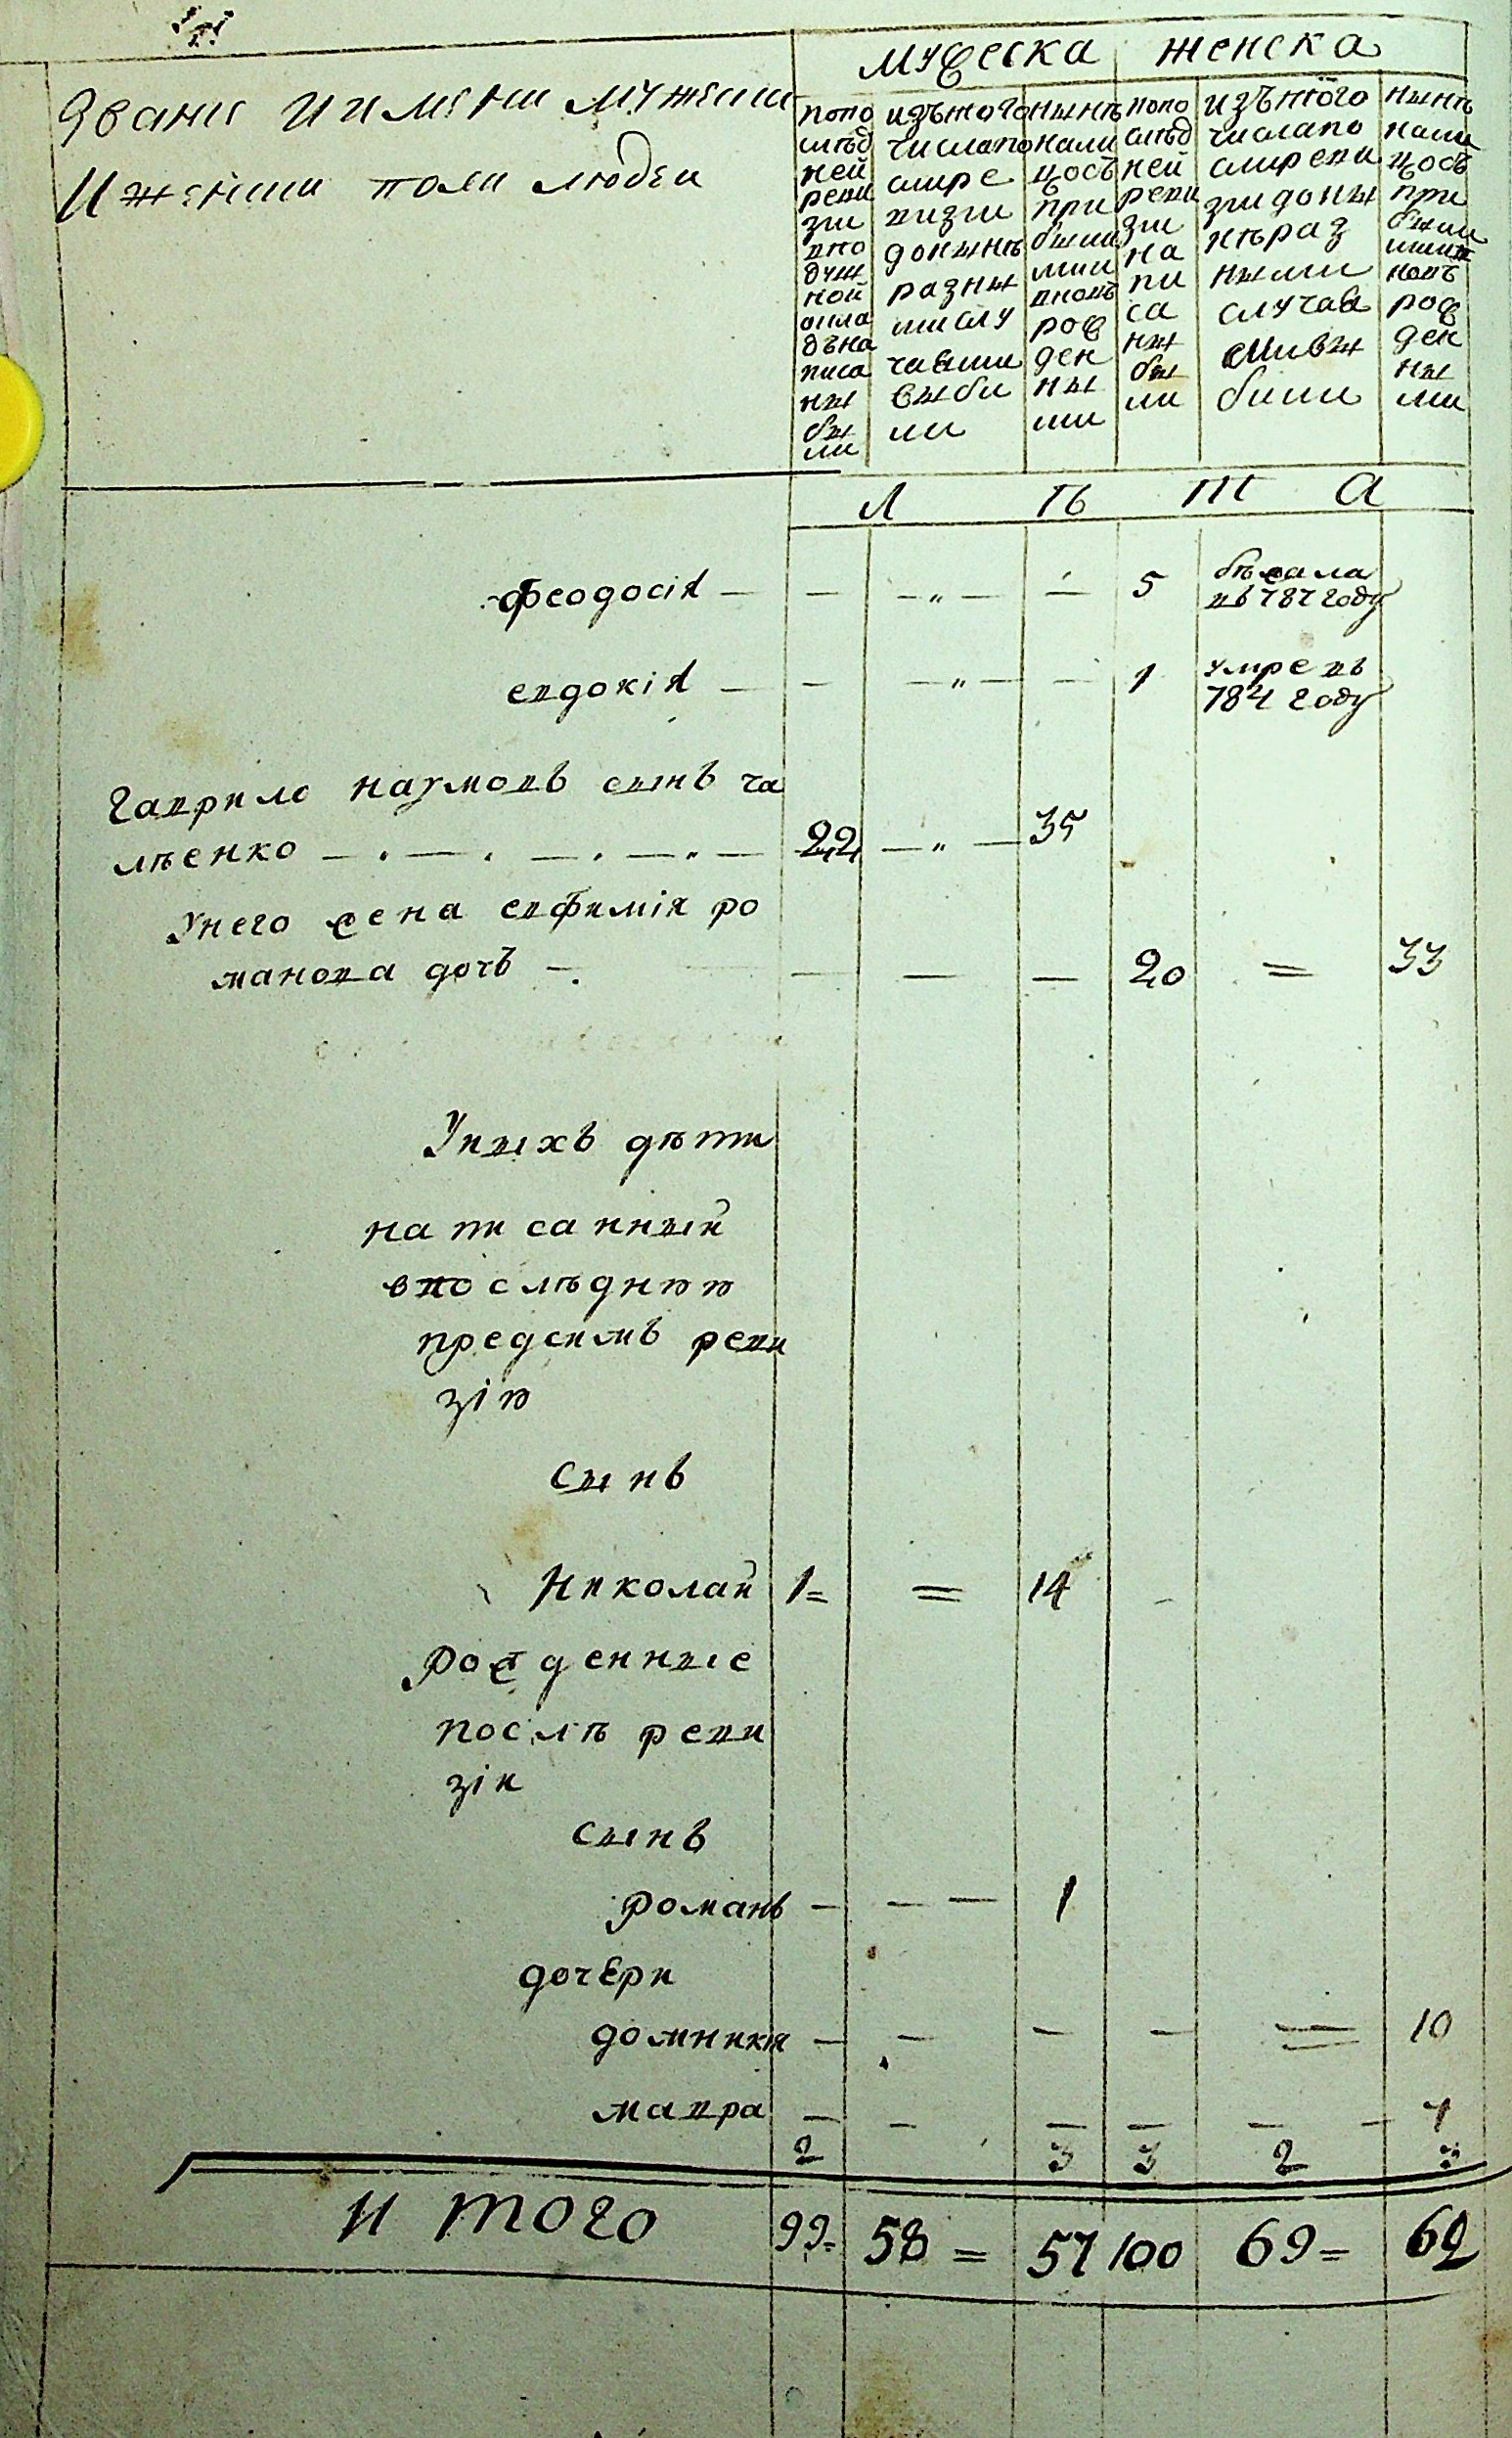 мужеска женска
Звание и имяни мужеска
и женска пола людеи
попо
слѣд
ней
реви
зіи
впо
душ
ной
окла
дъ на
писа
ны
бы
ли
изъ того
числа по
слѣ ре
визіи
до нынѣ
разны
ми слу
чаями
выбы
ли
нынѣ
на ли
цо съ
при
былы
ми
вновь
рож
ден
ны
ми
попо
слѣд
ней
реви
зіи
на
пи
са
ны
бы
ли
изъ того
числа по
слѣ реви
зіи до ны
нѣ раз
ными
случаи
выбыли
нынѣ
на ли
цо съ
при
былы
ми
новъ
рож
ден
ны
ми
Л ѣ т а
Феодосія — — — „ — — 5 бѣжала
въ 787 году
Евдокія — — — „ — — 1 умре въ
784 году
Гаврило Наумовъ сынъ Ча
лѣенко — . — . — . — . — 22 — „ — 35
У него жена Евфимія Ро
манова дочь — . — — — 20 = 33
У ныхъ дѣти
написанный
в последнюю
пред симъ реви
зію
сынъ
Николай 1 = = 14 -
Рожденные
послѣ реви
зіи
сынъ
Романъ — — — 1
дочери
Домникія — — — — = 10
Мавра — — — — — — 7
2 3 3 2 3
И того 99 = 58 = 57 100 69 = 62